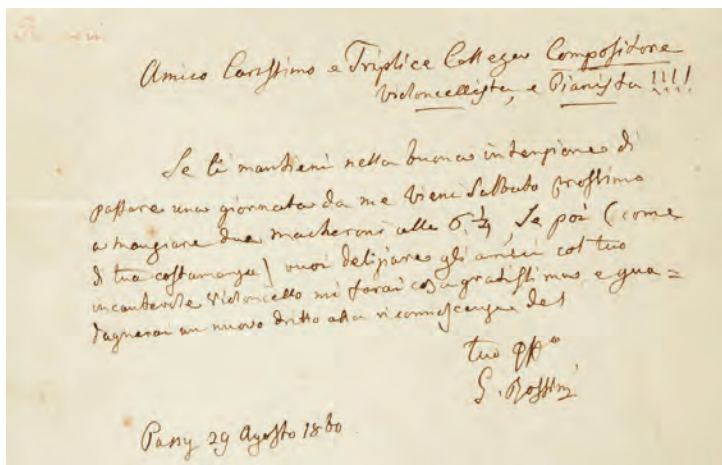 Rossini
Amico Carissimo e Triplice Collega Compositore
Violoncellista, e Pianista !!!!
Se ti mantieni nella buona intenzione di
passare una giornata da me vieni Sabbato prossimo
a mangiare due macheroni alle 6. ¼, Se poi (come
di tua costumanza) vuoi deliziare gli amici col tuo
incantevole Violoncello mi farai cosa gratissima e gua=
dagnerai un nuovo dritto alla riconnoscenza del
tuo aff.o
G. Rossini
Passy 29 Agosto 1860